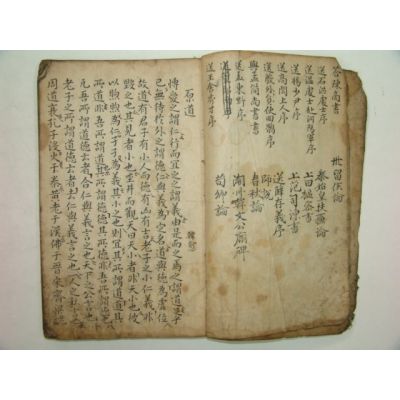 答陳商書
送石洪處士序
送溫處士赴河陽軍序
送楊少尹序
送高閑上人序
送殷外員使回鶻序
與孟簡尚書書
送孟東野序
送王含秀才序
留侯論
秦始皇扶蘇論
上田樞密書
上范司諫書
送薛存義序
師說
春秋論
潮州韓文公廟碑
荀卿論
原道
博愛之謂仁行而宜之之謂義由是而之焉之謂道足乎
己無待於外之謂德仁與義為定名道與德為虛位
故道有君子有小人而德有凶有吉老子之小仁義非
毀之也其見者小也坐井而觀天曰天小者非天小也彼
以煦煦為仁孑孑為義其小之也則宜其所謂道道其
所道非吾所謂道也其所謂德德其所德非吾所謂德也
凡吾所謂道德云者合仁與義言之也天下之公言也
老子之所謂道德云者去仁與義言之也一人之私言也
周道衰孔子沒火于秦黃老于漢佛于晉宋齊梁